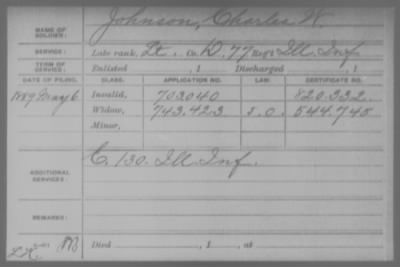 NAME OF SOLDIER: Johnson, Charles W.
SERVICE: Late rank, Lt. Co. D, 77 Reg't Ill. Inf.
TERM OF SERVICE: Enlisted , 1 Discharged , 1
DATE OF FILING. CLASS. APPLICATION NO. LAW. CERTIFICATE NO.
1889 May 6 Invalid, 703040 820.332.
Widow, 743.423 S.O. 544.745
Minor,
ADDITIONAL SERVICES: C. 130. Ill. Inf.
REMARKS:
Died , 1 , at